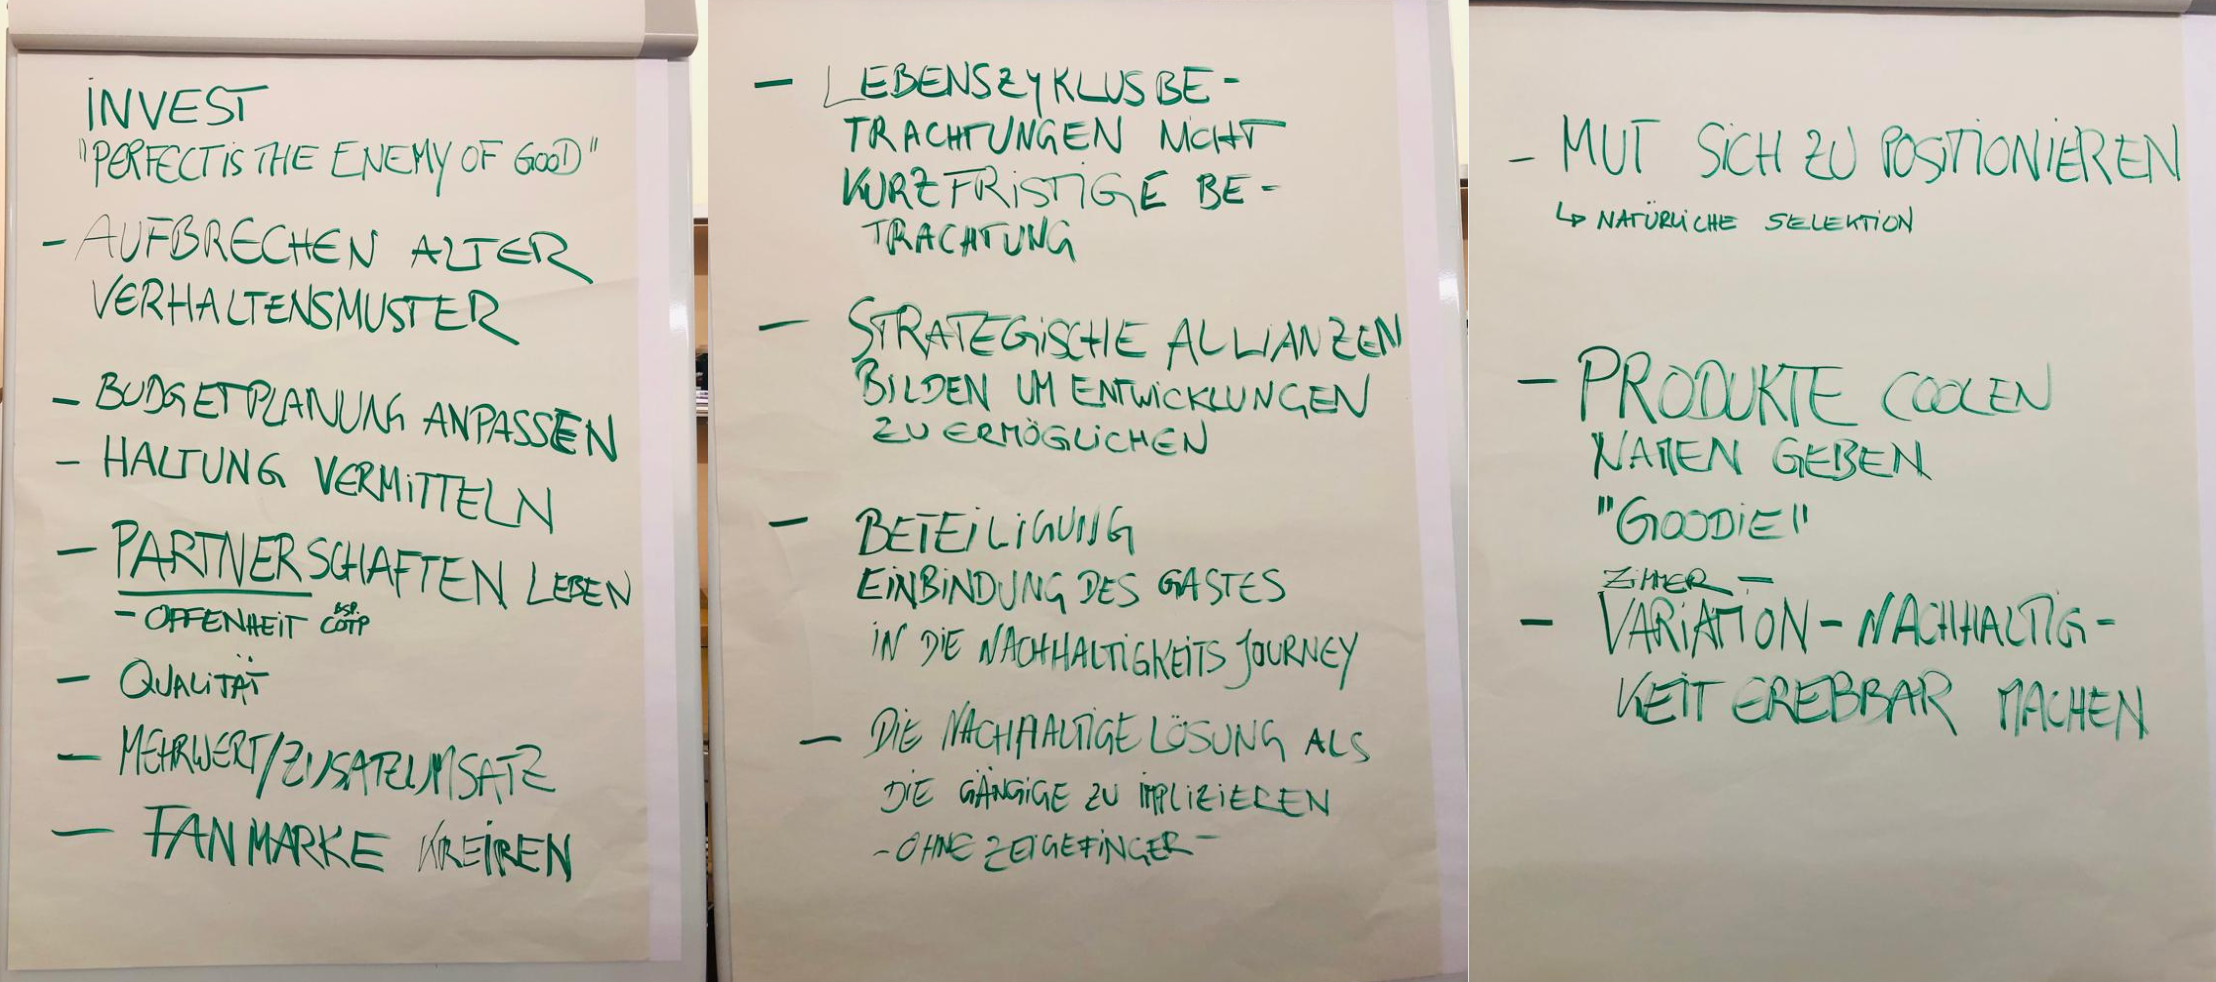 INVEST
"PERFECT IS THE ENEMY OF GOOD"
- AUFBRECHEN ALTER
VERHALTENSMUSTER
- BUDGETPLANUNG ANPASSEN
- HALTUNG VERMITTELN
- PARTNERSCHAFTEN LEBEN
- OFFENHEIT BSP.
- QUALITÄT
- MEHRWERT/ZUSATZUMSATZ
- FANMARKE KREIREN
- LEBENSZYKLUSBE-
TRACHTUNGEN NICHT
KURZFRISTIGE BE-
TRACHTUNG
- STRATEGISCHE ALLIANZEN
BILDEN UM ENTWICKLUNGEN
ZU ERMÖGLICHEN
- BETEILIGUNG
EINBINDUNG DES GASTES
IN DIE NACHHALTIGKEITSJOURNEY
- DIE NACHHALTIGE LÖSUNG ALS
DIE GÄNGIGE ZU IMPLIZIEREN
- OHNE ZEIGEFINGER -
- MUT SICH ZU POSITIONIEREN
↳ NATÜRLICHE SELEKTION
- PRODUKTE COOLEN
NAMEN GEBEN
"GOODIE"
ZIMMER -
- VARIATION - NACHHALTIG-
KEIT EREBBAR MACHEN